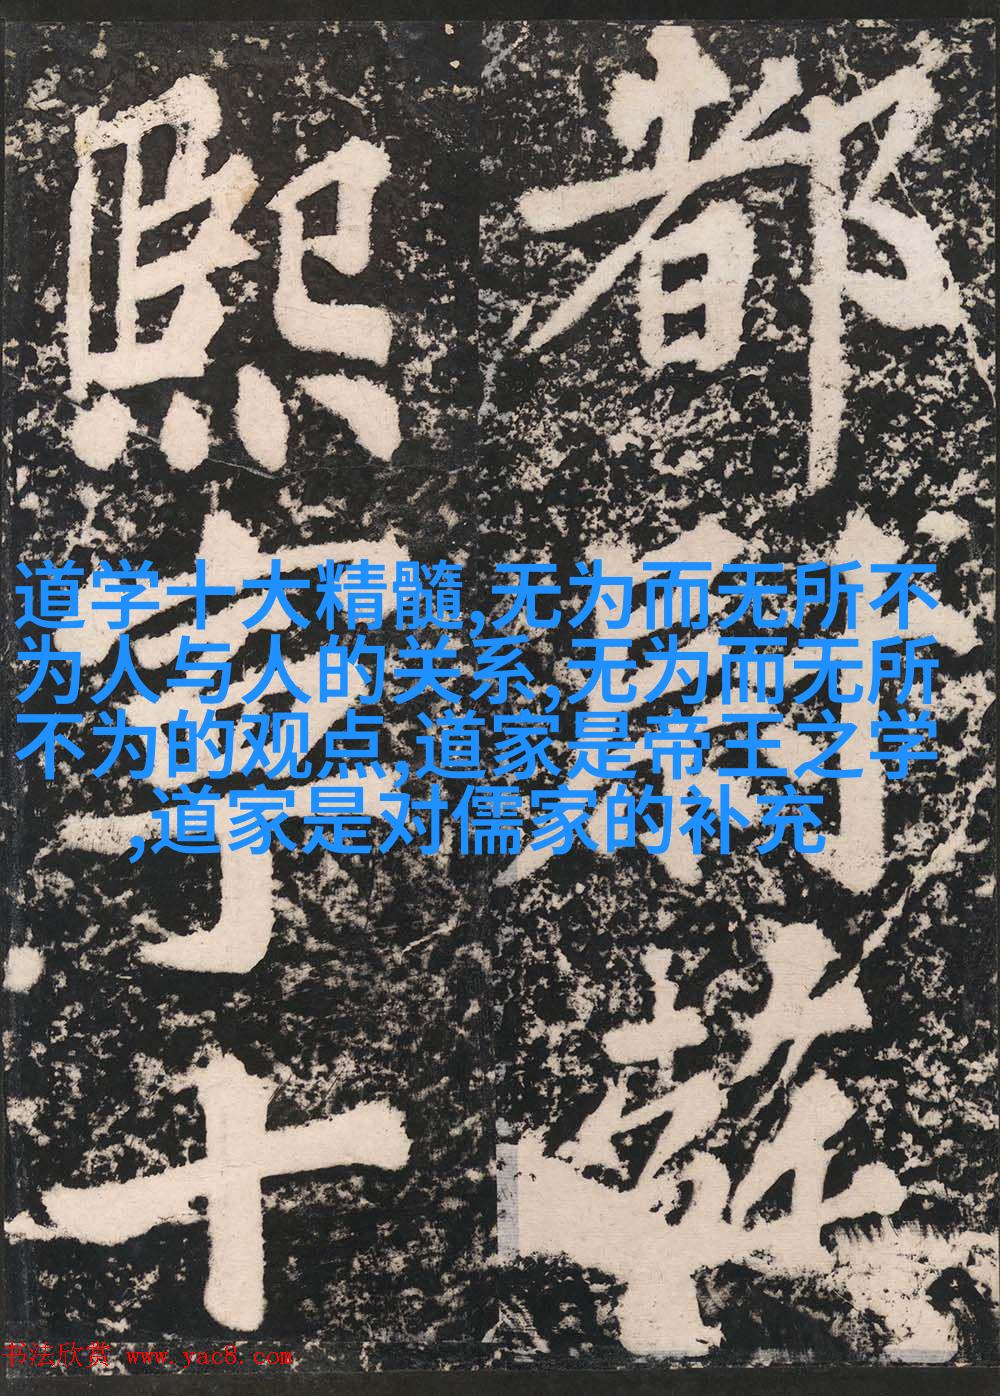 都
熙
十
道学十大精髓,无为而无所不
为人与人的关系,无为而无所
不为的观点,道家是帝王之学
,道家是对儒家的补充
书法欣赏 www.yac8.com